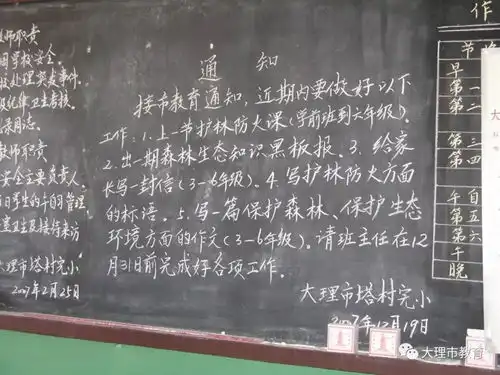 教师职责
护学校安全。
处理突发事件。
纪律卫生考核。
录同志。
教师职责
安全主要负责人。
日学生的午自习管理,
室卫生及接待来访
大理市塔村完小
2007年2月25日
通知
接市教育通知,近期内要做好以下
工作:1.上一节护林防火课(学前班到六年级)。
2.出一期森林生态知识黑板报。3.给家
长写一封信(3-6年级)。4.写护林防火方面
的标语。5.写一篇保护森林、保护生态
环境方面的作文(3-6年级)。请班主任在12
月31日前完成好各项工作。
大理市塔村完小
2007年12月19日
作
节
早
第一
第二
第三
第四
午自
第五
第六
午
晚
大
大理市教育